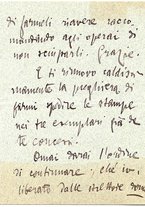 di farmeli riavere racco-
mandando agli operai di
non sciuparli. Grazie.
E ti rinnovo caldissi-
mamente la preghiera di
farmi spedire le stampe
nei tre esemplari già da
te concessi.
Omai darai l'ordine
di continuare; chè io,
liberato dalle